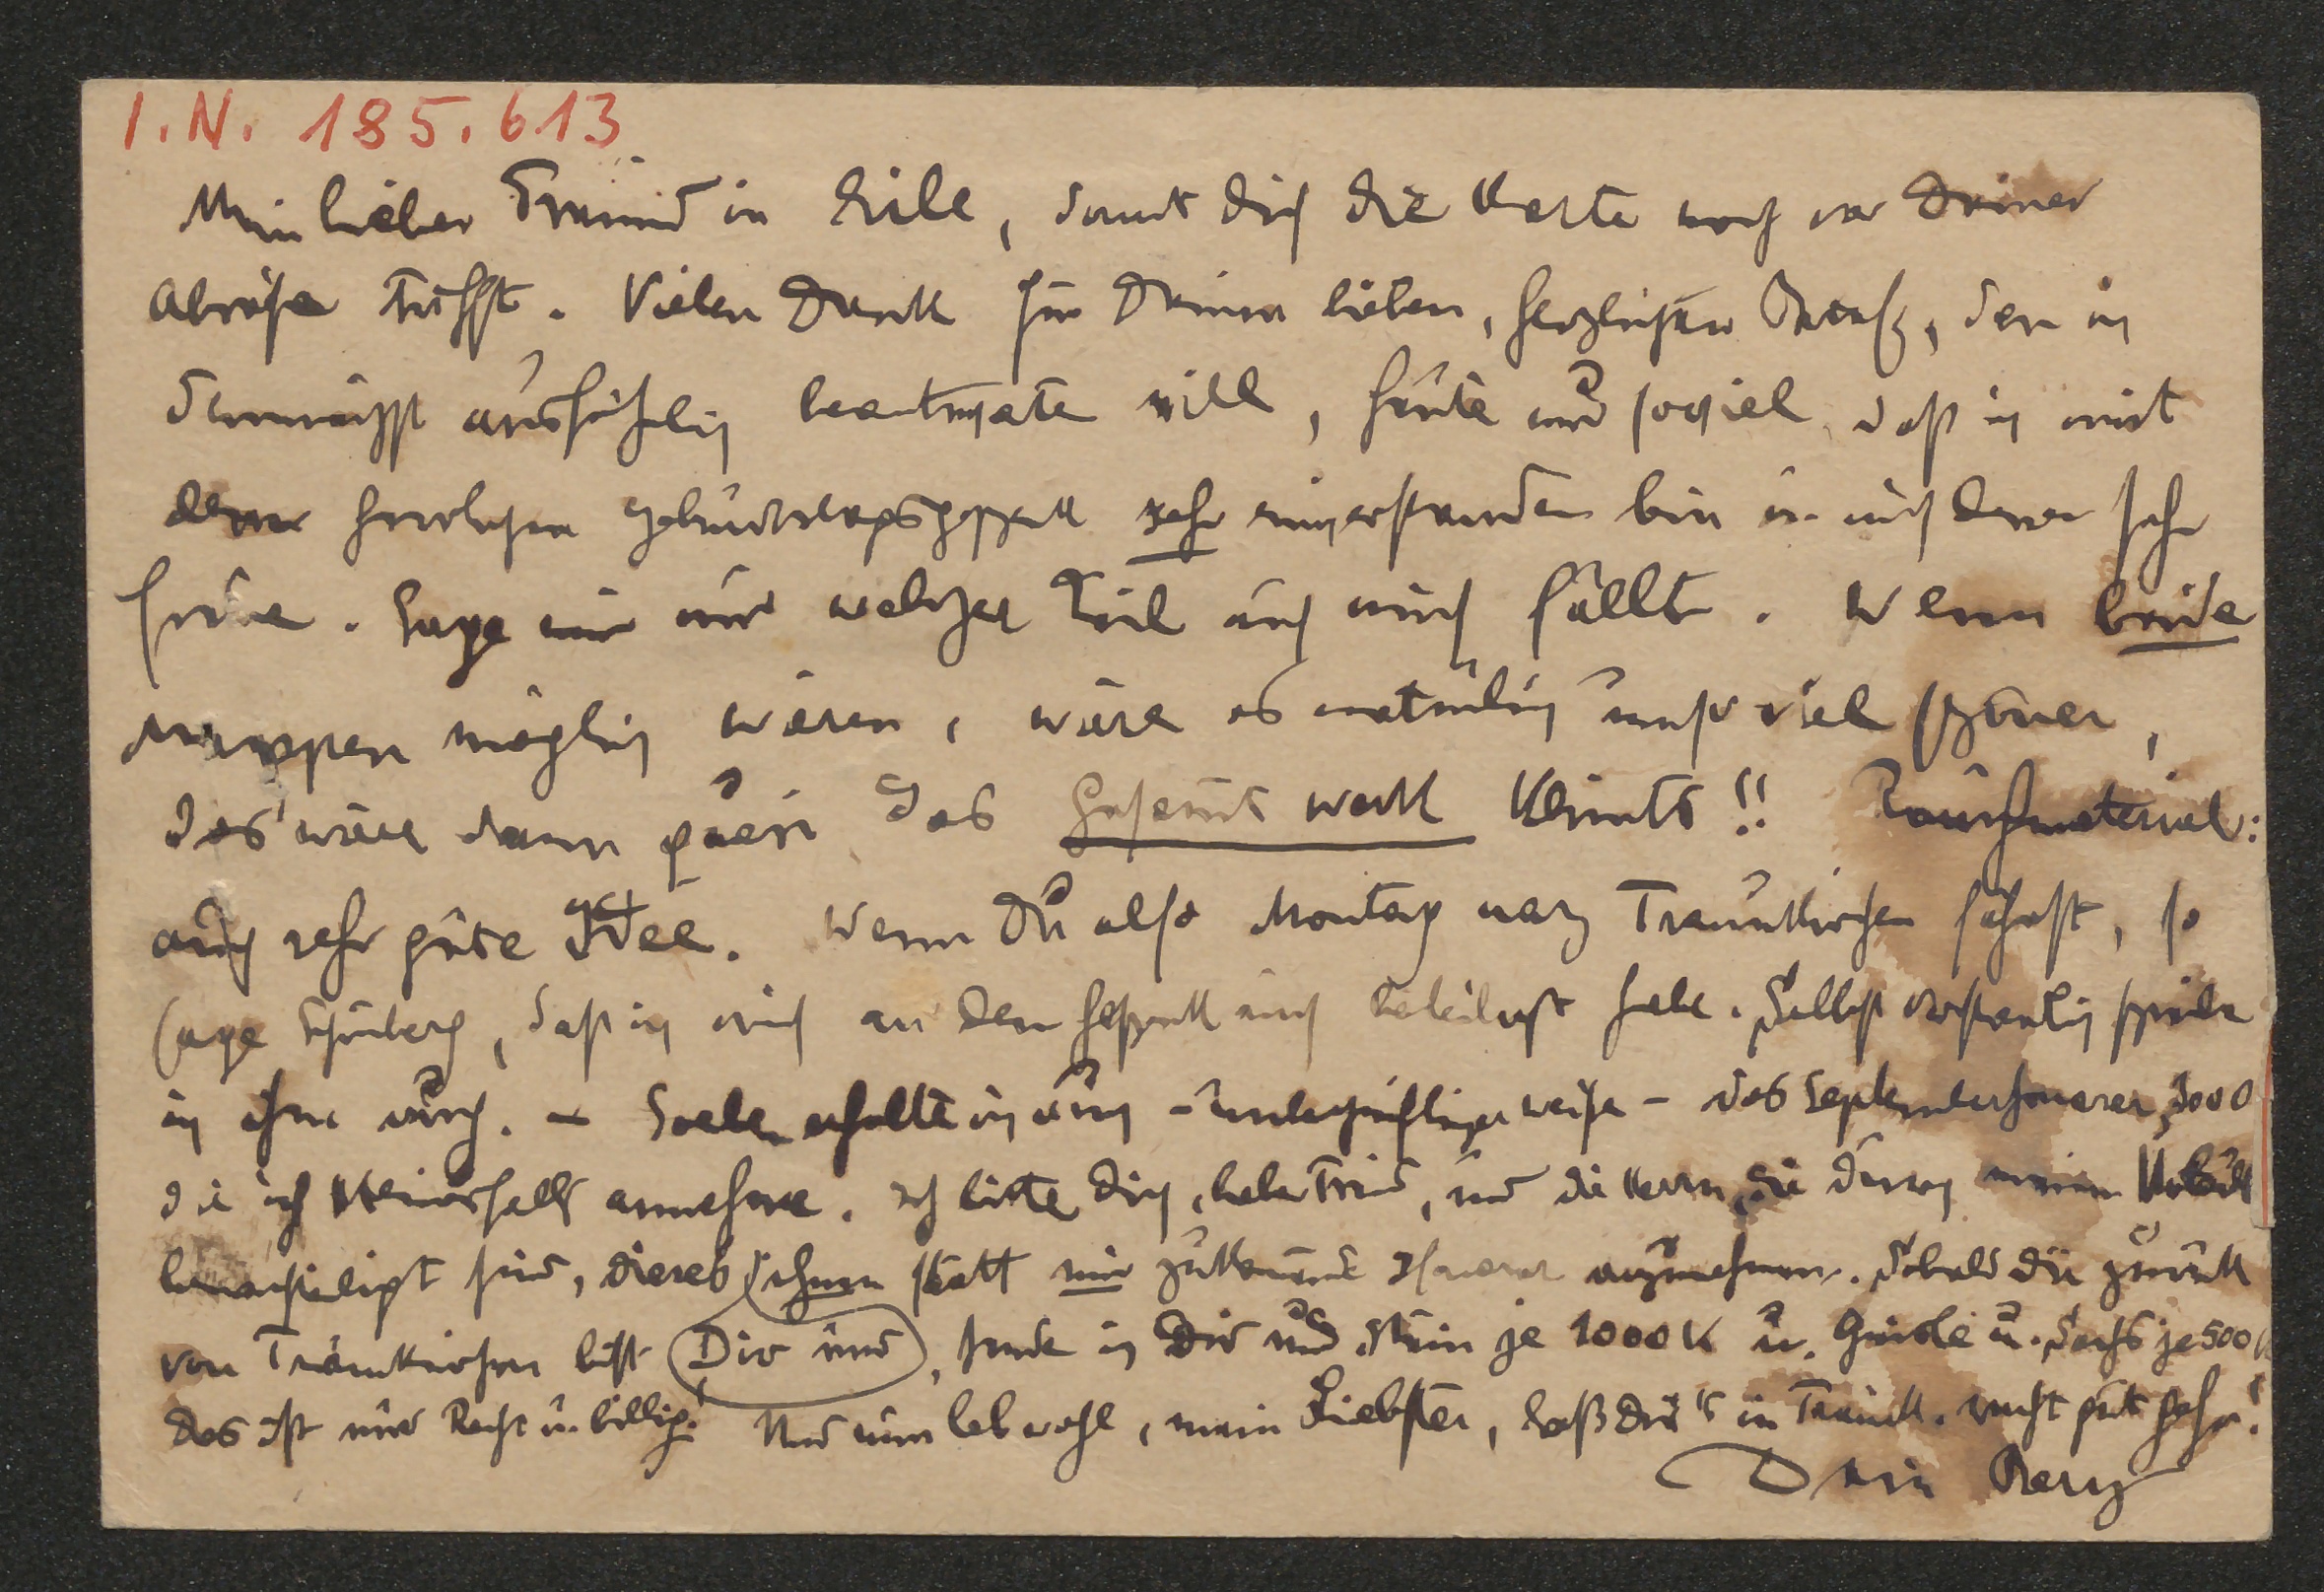 I.N. 185.613
Mein lieber Freund in Eile, damit dich die Karte noch vor Deiner
Abreise trifft. Vielen Dank für Deinen lieben, herzlichen Brief, den ich
demnächst ausführlich beantworten will, heute nur soviel, daß ich mit
dem herrlichen Geburtstagsgeschenk sehr einverstanden bin u. mich darüber sehr
freue. Sage mir nur welcher Teil auf mich fällt. Wenn beide
Mappen möglich wären, wäre es natürlich umso viel schöner,
das wäre dann quasi das Gesamtwerk Klimts!! Rauchmaterial:
auch sehr gute Idee. Wenn Du also Montag nach Traunkirchen fährst, so
sage Schönberg, daß ich mich an dem Geschenk auch beteiligt habe. Selbstverständlich schreibe
ich ihm auch. – Soeben erhalte ich auch – unbegreiflicherweise – das Septemberhonorar, 3000
die ich keinesfalls annehme. Ich bitte dich, lieber Freund, und die Herrn, die durch meinen Urlaub
benachteiligt sind, dieses ihnen statt mir zukommende Honorar anzunehmen. Sobald du zurück
von Traunkirchen bist (Dir und), sende ich Dir und Stein je 1000 K u. Heinsheimer u. Sachs je 500 K
das ist nur Recht u. billig! Und nun leb wohl, mein Liebster, lass dir's in Traunk. recht gut gehn!
Dein Berg